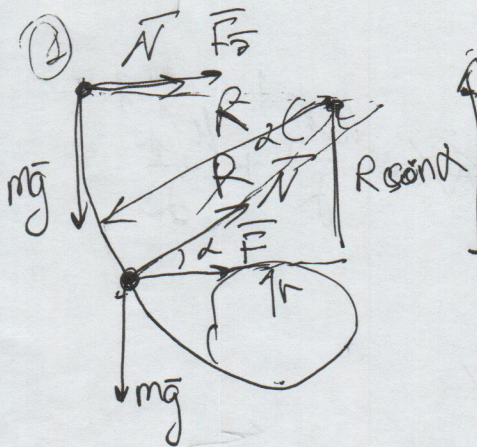 ①
N⃗ F⃗
R
α
mg⃗
R N⃗
R sinα
α F⃗
r
mg⃗